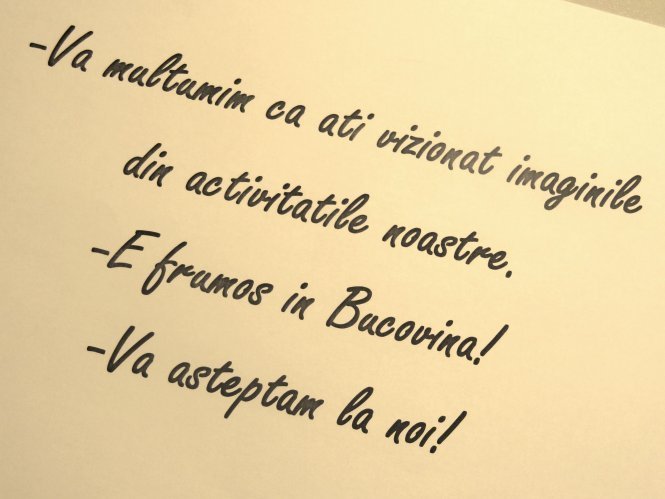 -Va multumim ca ati vizionat imaginile
din activitatile noastre.
-E frumos in Bucovina!
-Va asteptam la noi!